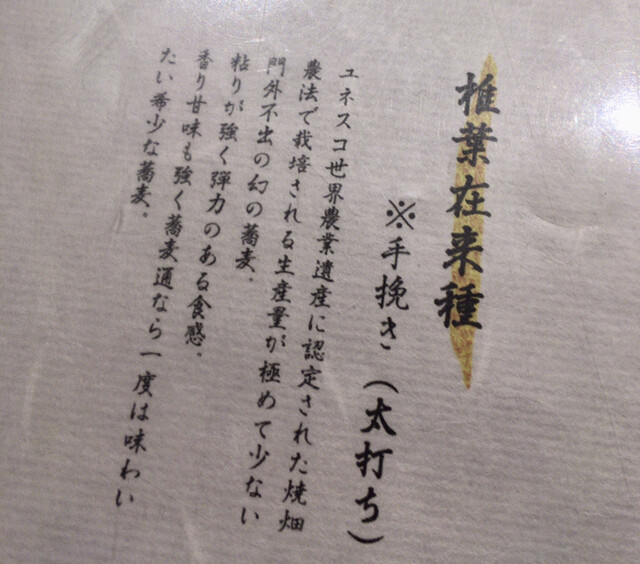 椎葉在来種
※手挽き（太打ち）
ユネスコ世界農業遺産に認定された焼畑
農法で栽培される生産量が極めて少ない
門外不出の幻の蕎麦。
粘りが強く弾力のある食感。
香り甘味も強く蕎麦通なら一度は味わい
たい希少な蕎麦。